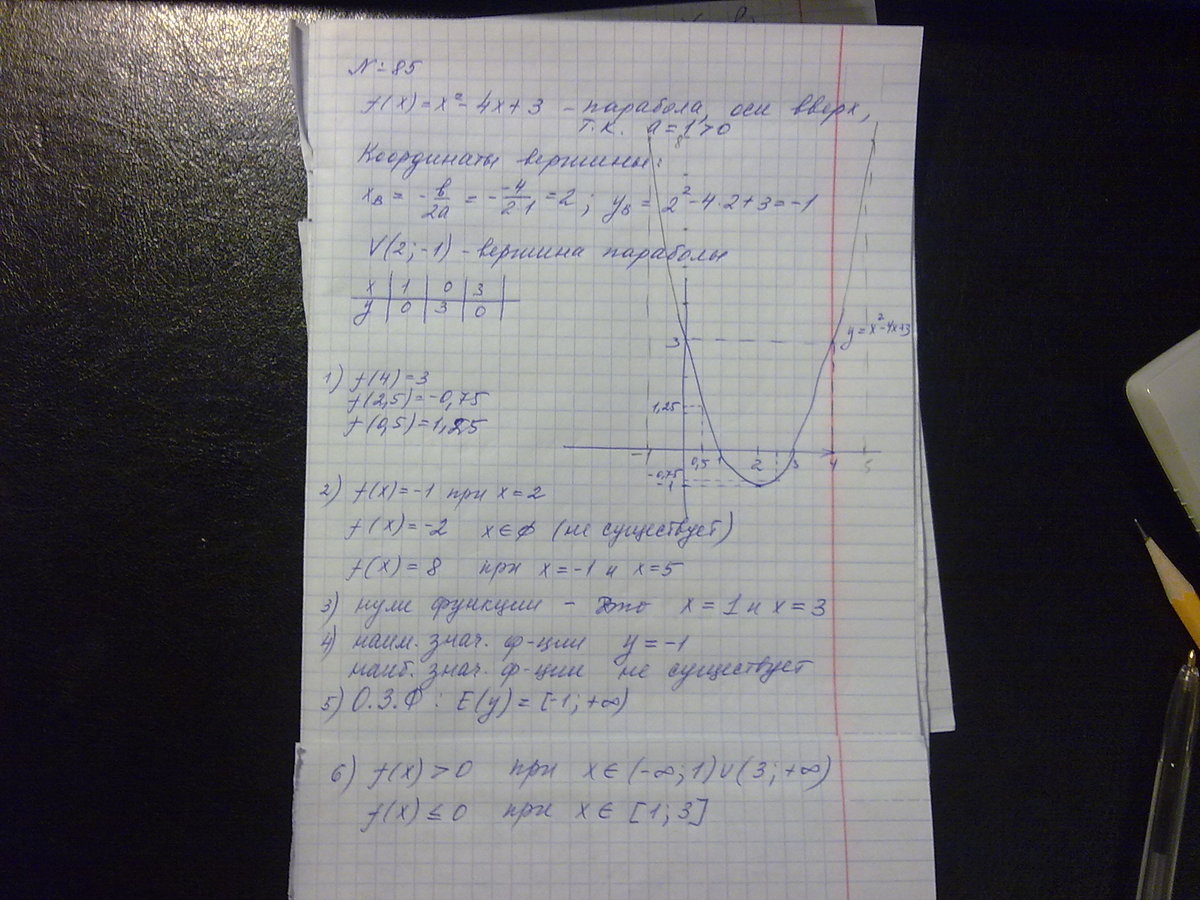 № 85
f(x) = x² - 4x + 3 - парабола, оси вверх,
т.к. a = 1 > 0
Координаты вершины:
xв = -в/2a = - -4/2·1 = 2; yв = 2² - 4·2 + 3 = -1
V(2; -1) - вершина параболы
x | 1 | 0 | 3
y | 0 | 3 | 0
1) f(4) = 3
f(2,5) = -0,75
f(0,5) = 1,25
2) f(x) = -1 при x = 2
f(x) = -2 x ∈ ∅ (не существует)
f(x) = 8 при x = -1 и x = 5
3) нули функции - это x = 1 и x = 3
4) наим. знач. ф-ции y = -1
наиб. знач. ф-ции не существует
5) О.З.Ф: E(y) = [-1; +∞)
6) f(x) > 0 при x ∈ (-∞; 1) ∪ (3; +∞)
f(x) ≤ 0 при x ∈ [1; 3]
8
y = x² - 4x + 3
3
1,25
-1 0,5 1 2 3 4 5
-0,75
-1